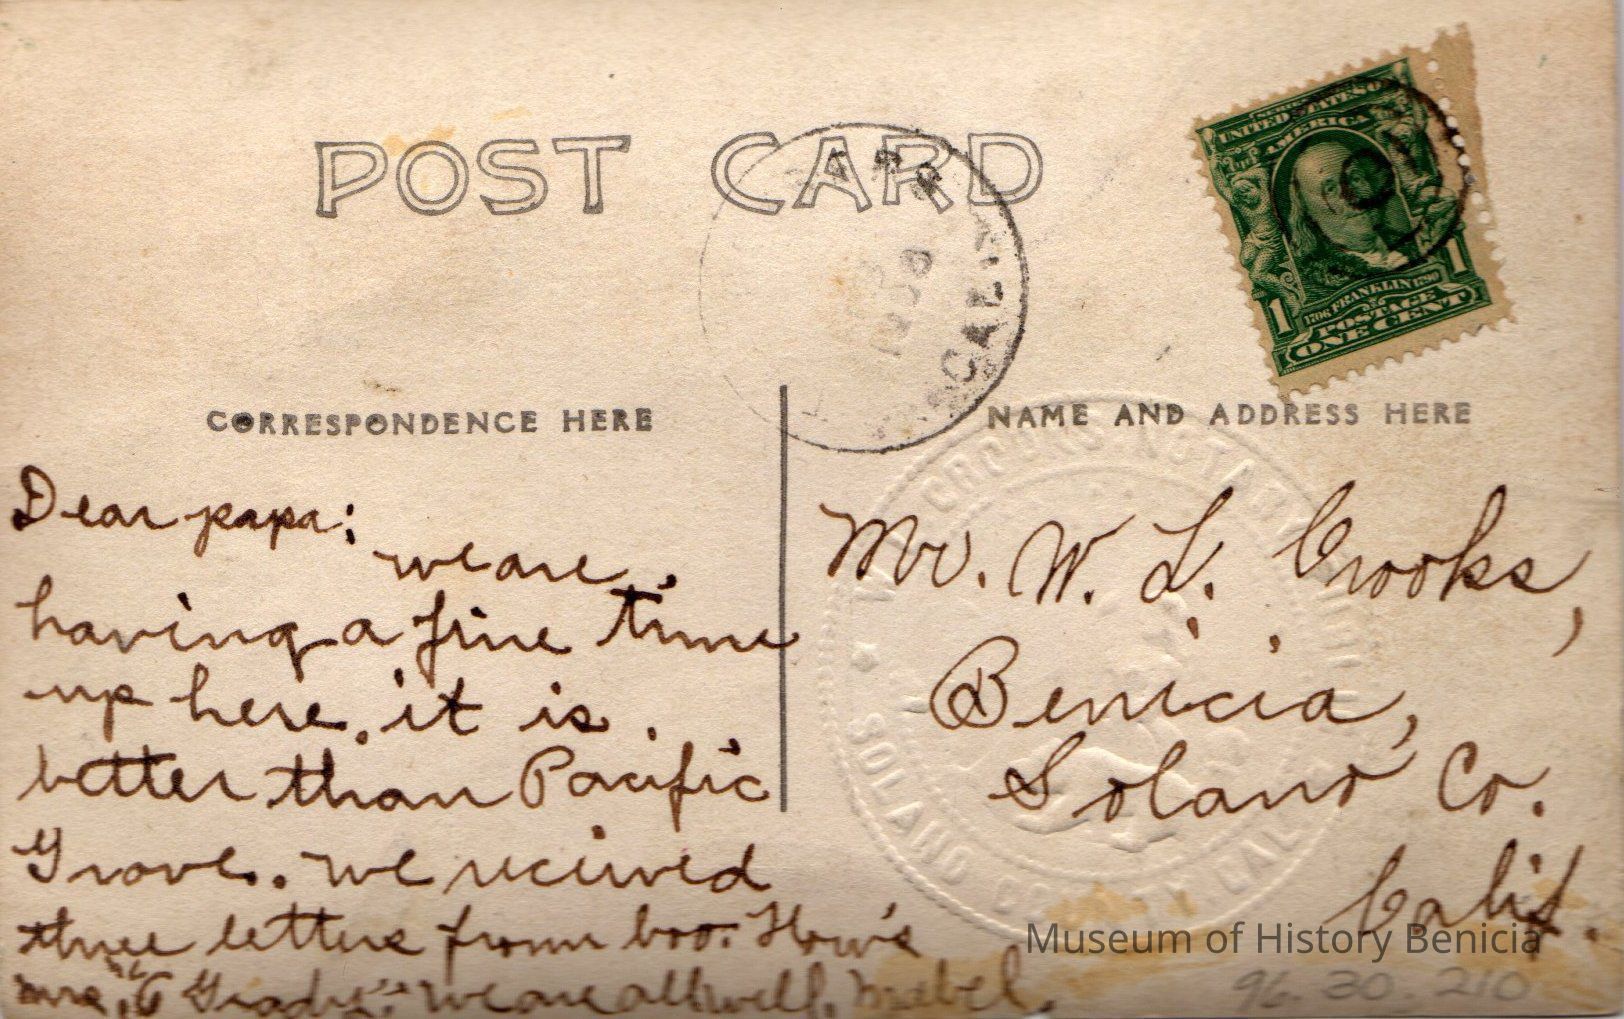 POST CARD
UNITED STATES OF
AMERICA
1706 FRANKLIN 1790
POSTAGE
1 ONE CENT 1
CAL.
CORRESPONDENCE HERE
NAME AND ADDRESS HERE
Dear papa:
we are
having a fine time
up here. it is
better than Pacific
Grove. we recieved
three letters from boo. How's
Mrs. O'Grady. we are all well. Mabel.
Mr. W. L. Crooks,
Benicia,
Solano Co.
Calif.
W. L. CROOKS NOTARY PUBLIC
SOLANO COUNTY CAL
Museum of History Benicia
96.30.210